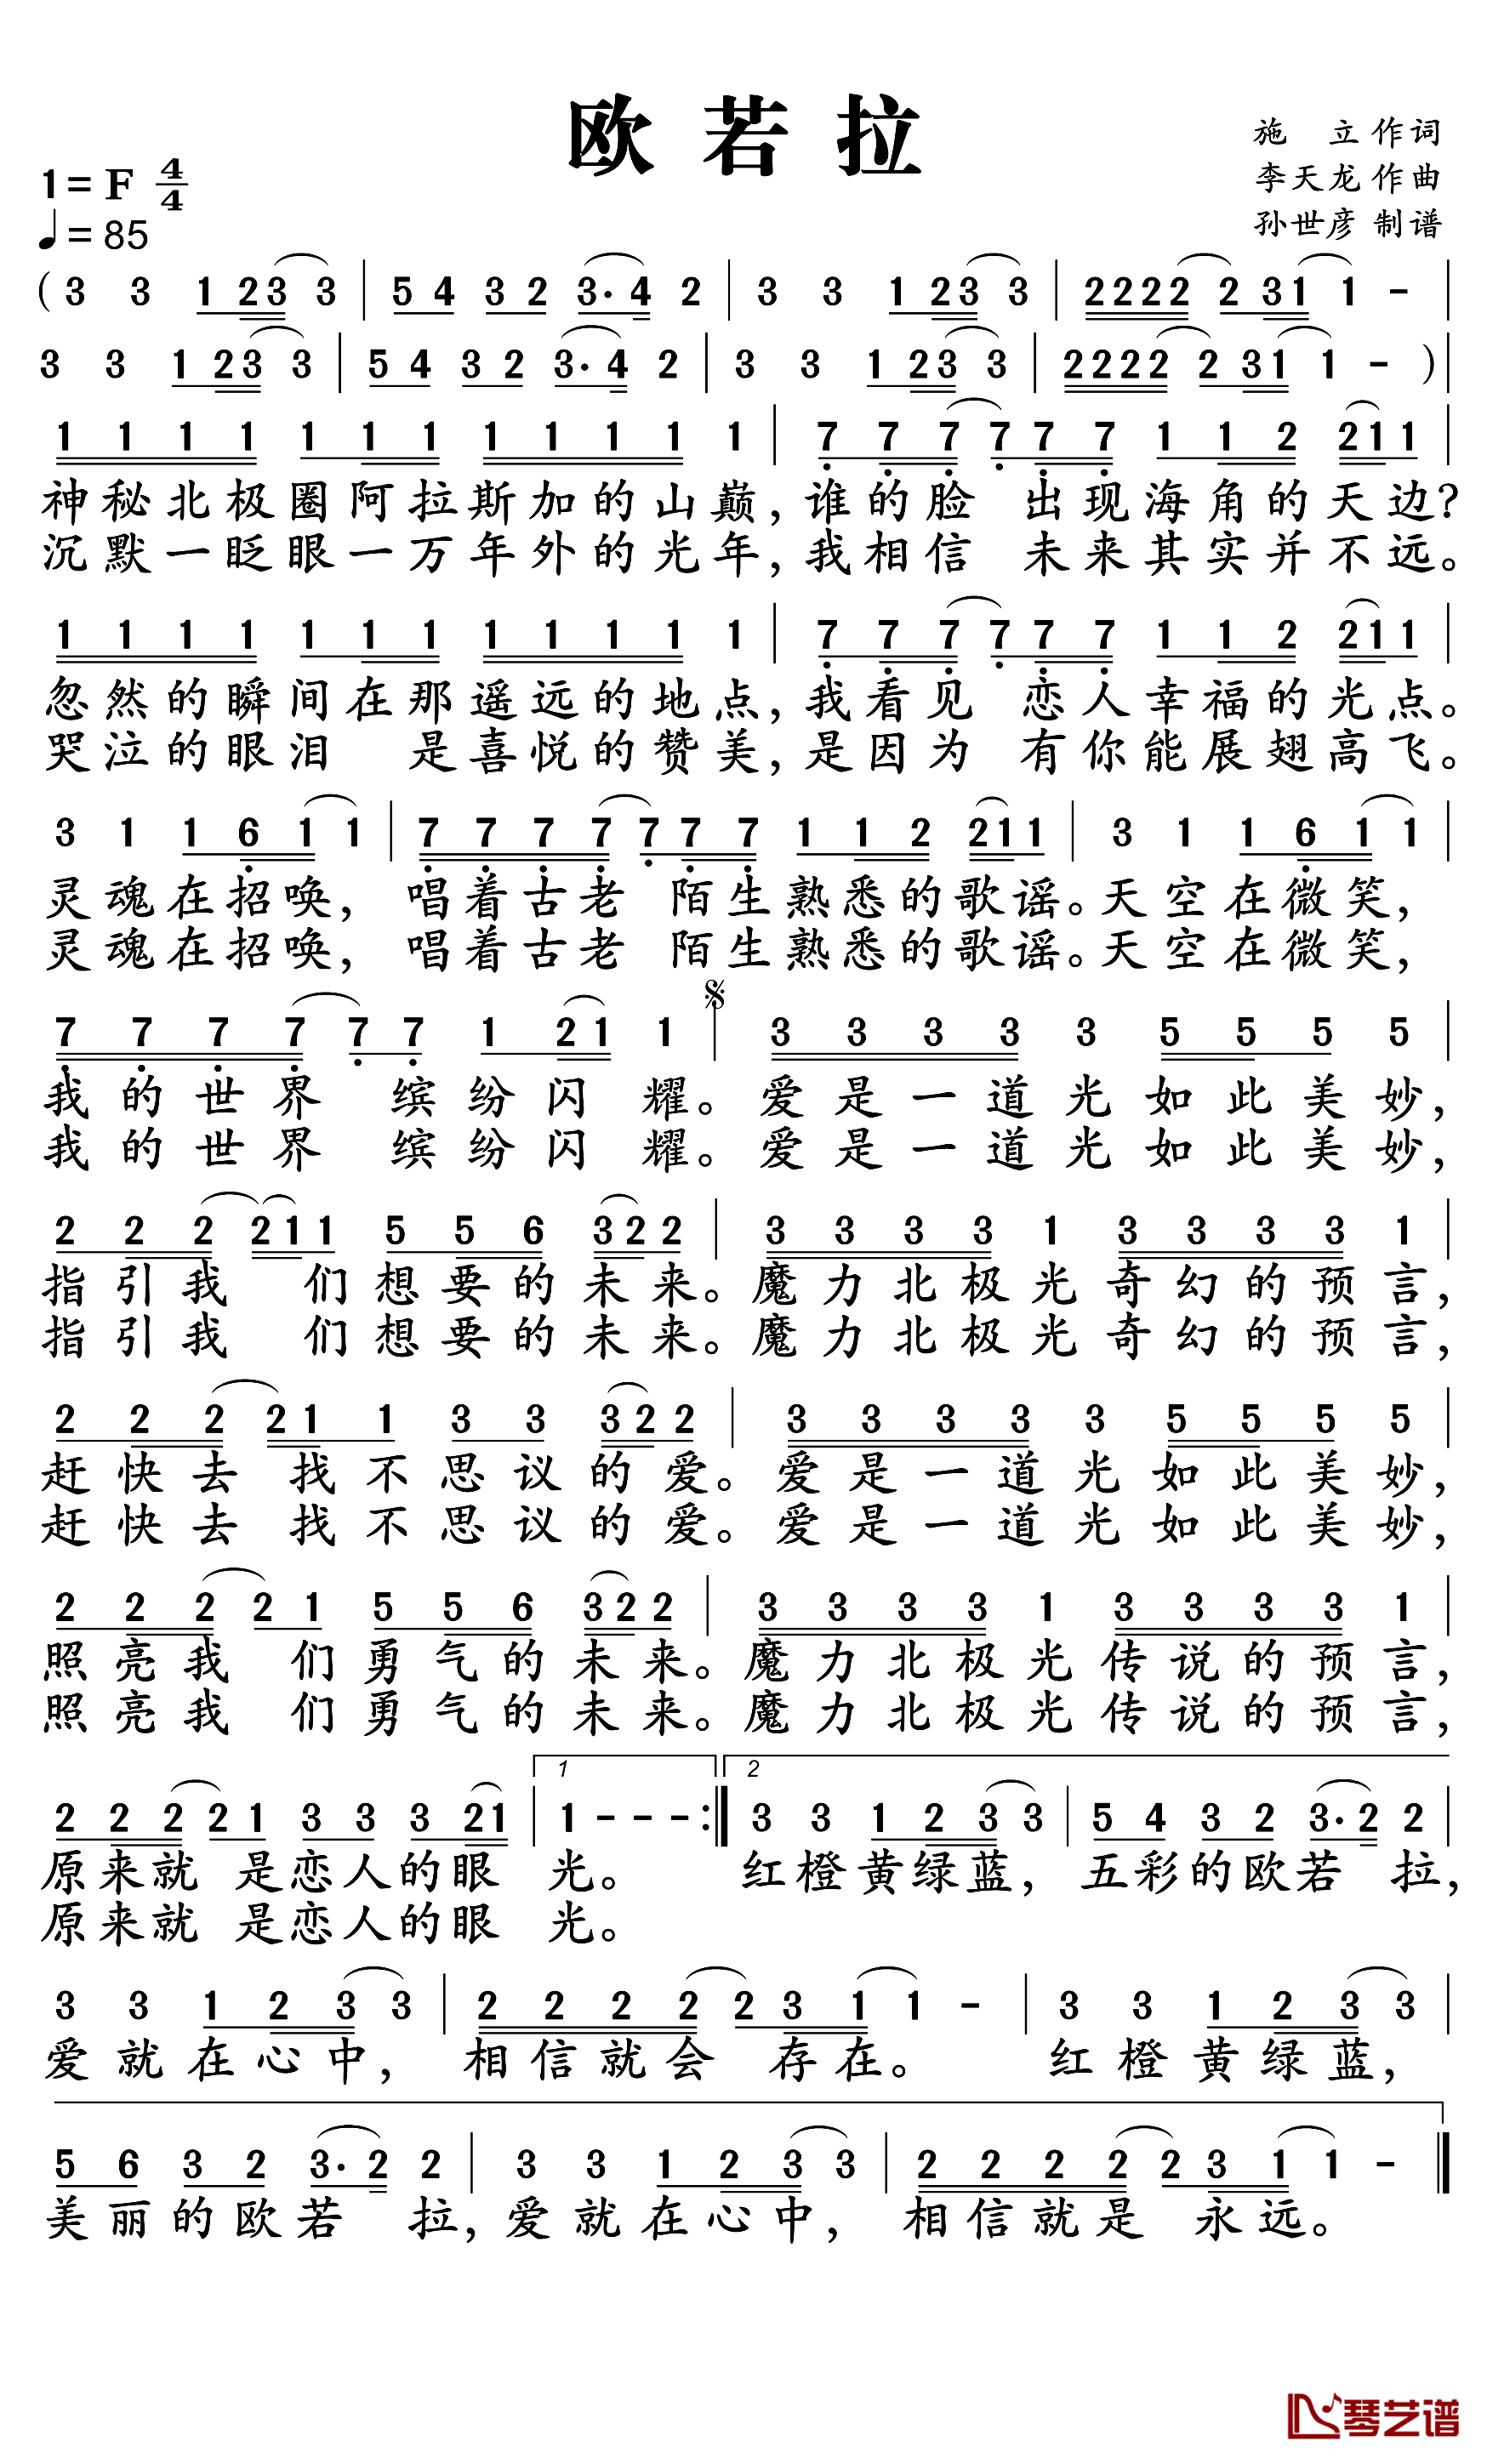 欧若拉
施 立 作词
李天龙 作曲
孙世彦 制谱
1= F 4/4
♩= 85
( 3 3 1 2 3 3 | 5 4 3 2 3· 4 2 | 3 3 1 2 3 3 | 2 2 2 2 2 3 1 1 - |
3 3 1 2 3 3 | 5 4 3 2 3· 4 2 | 3 3 1 2 3 3 | 2 2 2 2 2 3 1 1 - ) |
1 1 1 1 1 1 1 1 1 1 1 1 | 7 7 7 7 7 7 1 1 2 2 1 1 |
神秘北极圈阿拉斯加的山巅,谁的脸 出现海角的天边?
沉默一眨眼一万年外的光年,我相信 未来其实并不远。
1 1 1 1 1 1 1 1 1 1 1 1 | 7 7 7 7 7 7 1 1 2 2 1 1 |
忽然的瞬间在那遥远的地点,我看见 恋人幸福的光点。
哭泣的眼泪 是喜悦的赞美,是因为 有你能展翅高飞。
3 1 1 6 1 1 | 7 7 7 7 7 7 7 1 1 2 2 1 1 | 3 1 1 6 1 1 |
灵魂在招唤, 唱着古老 陌生熟悉的歌谣。天空在微笑,
灵魂在招唤, 唱着古老 陌生熟悉的歌谣。天空在微笑,
7 7 7 7 7 7 1 2 1 1 | 3 3 3 3 3 5 5 5 5 |
我的世界 缤纷闪耀。爱是一道光如此美妙,
我的世界 缤纷闪耀。爱是一道光如此美妙,
2 2 2 2 1 1 5 5 6 3 2 2 | 3 3 3 3 1 3 3 3 3 1 |
指引我 们想要的未来。魔力北极光奇幻的预言,
指引我 们想要的未来。魔力北极光奇幻的预言,
2 2 2 2 1 1 3 3 3 2 2 | 3 3 3 3 3 5 5 5 5 |
赶快去 找不思议的爱。爱是一道光如此美妙,
赶快去 找不思议的爱。爱是一道光如此美妙,
2 2 2 2 1 5 5 6 3 2 2 | 3 3 3 3 1 3 3 3 3 1 |
照亮我 们勇气的未来。魔力北极光传说的预言,
照亮我 们勇气的未来。魔力北极光传说的预言,
1 2
2 2 2 2 1 3 3 3 2 1 | 1 - - - :| 3 3 1 2 3 3 | 5 4 3 2 3· 2 2 |
原来就 是恋人的眼 光。 红橙黄绿蓝, 五彩的欧若 拉,
原来就 是恋人的眼 光。
3 3 1 2 3 3 | 2 2 2 2 2 3 1 1 - | 3 3 1 2 3 3 |
爱就在心中, 相信就会 存在。 红橙黄绿蓝,
5 6 3 2 3· 2 2 | 3 3 1 2 3 3 | 2 2 2 2 2 3 1 1 - ||
美丽的欧若 拉,爱就在心中, 相信就是 永远。
琴艺谱